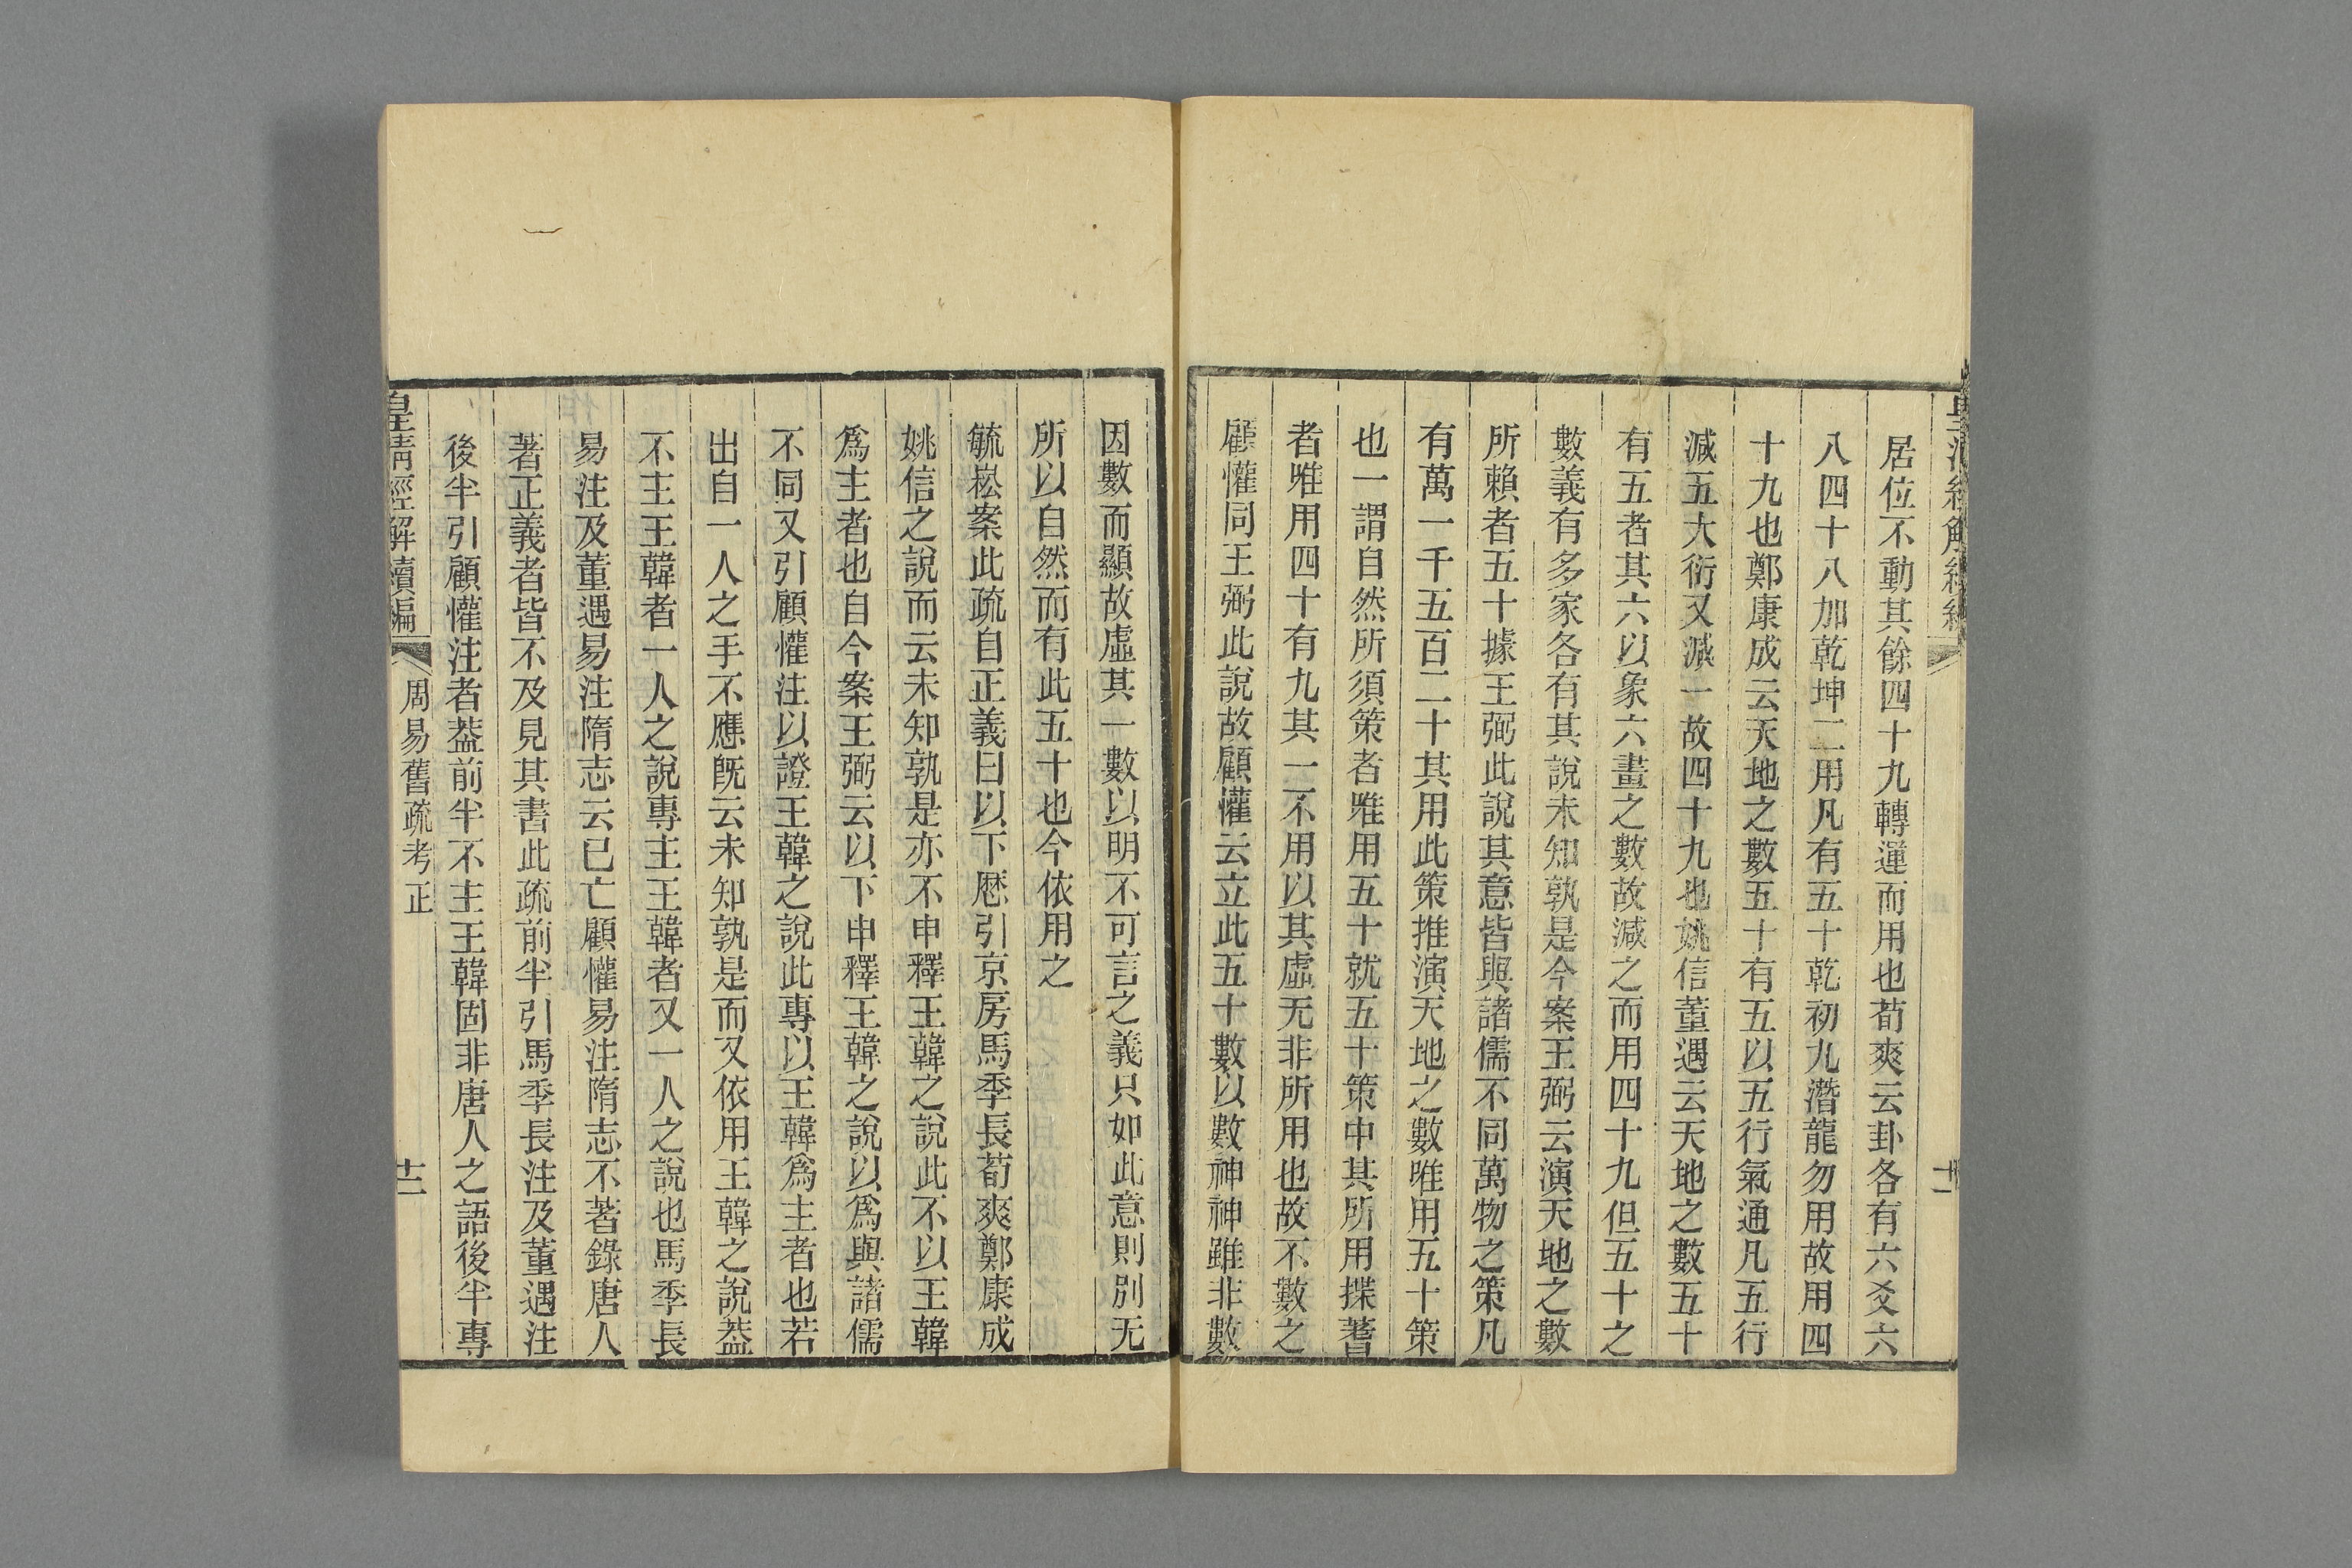 居位不動其餘四十九轉運而用也荀爽云卦各有六爻六
八四十八加乾坤二用凡有五十乾初九潛龍勿用故用四
十九也鄭康成云天地之數五十有五以五行氣通凡五行
減五大衍又減一故四十九也姚信董遇云天地之數五十
有五者其六以象六畫之數故減之而用四十九但五十之
數義有多家各有其說未知孰是今案王弼云演天地之數
所賴者五十據王弼此說其意皆與諸儒不同萬物之策凡
有萬一千五百二十其用此策推演天地之數唯用五十策
也一謂自然所須策者唯用五十就五十策中其所用揲蓍
者唯用四十有九其一不用以其虛无非所用也故不數之
顧懽同王弼此說故顧懽云立此五十數以數神神雖非數
因數而顯故虛其一數以明不可言之義只如此意則別无
所以自然而有此五十也今依用之
毓崧案此疏自正義曰以下厯引京房馬季長荀爽鄭康成
姚信之說而云未知孰是亦不申釋王韓之說此不以王韓
爲主者也自今案王弼云以下申釋王韓之說以爲與諸儒
不同又引顧懽注以證王韓之說此專以王韓爲主者也若
出自一人之手不應旣云未知孰是而又依用王韓之說葢
不主王韓者一人之說專主王韓者又一人之說也馬季長
易注及董遇易注隋志云已亡顧懽易注隋志不著錄唐人
著正義者皆不及見其書此疏前半引馬季長注及董遇注
後半引顧懽注者葢前半不主王韓固非唐人之語後半專
皇清經解續編
周易舊疏考正
十二